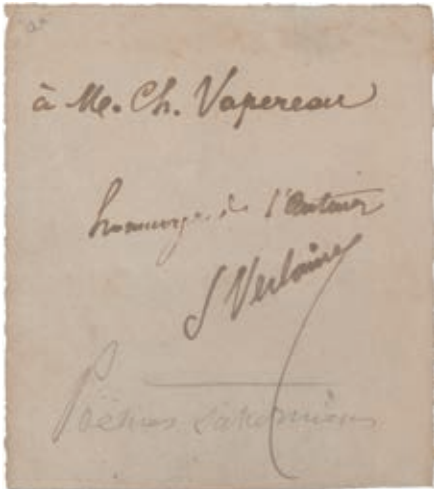 à M. Ch. Vapereau
hommage de l'auteur
P Verlaine
Poèmes saturniens